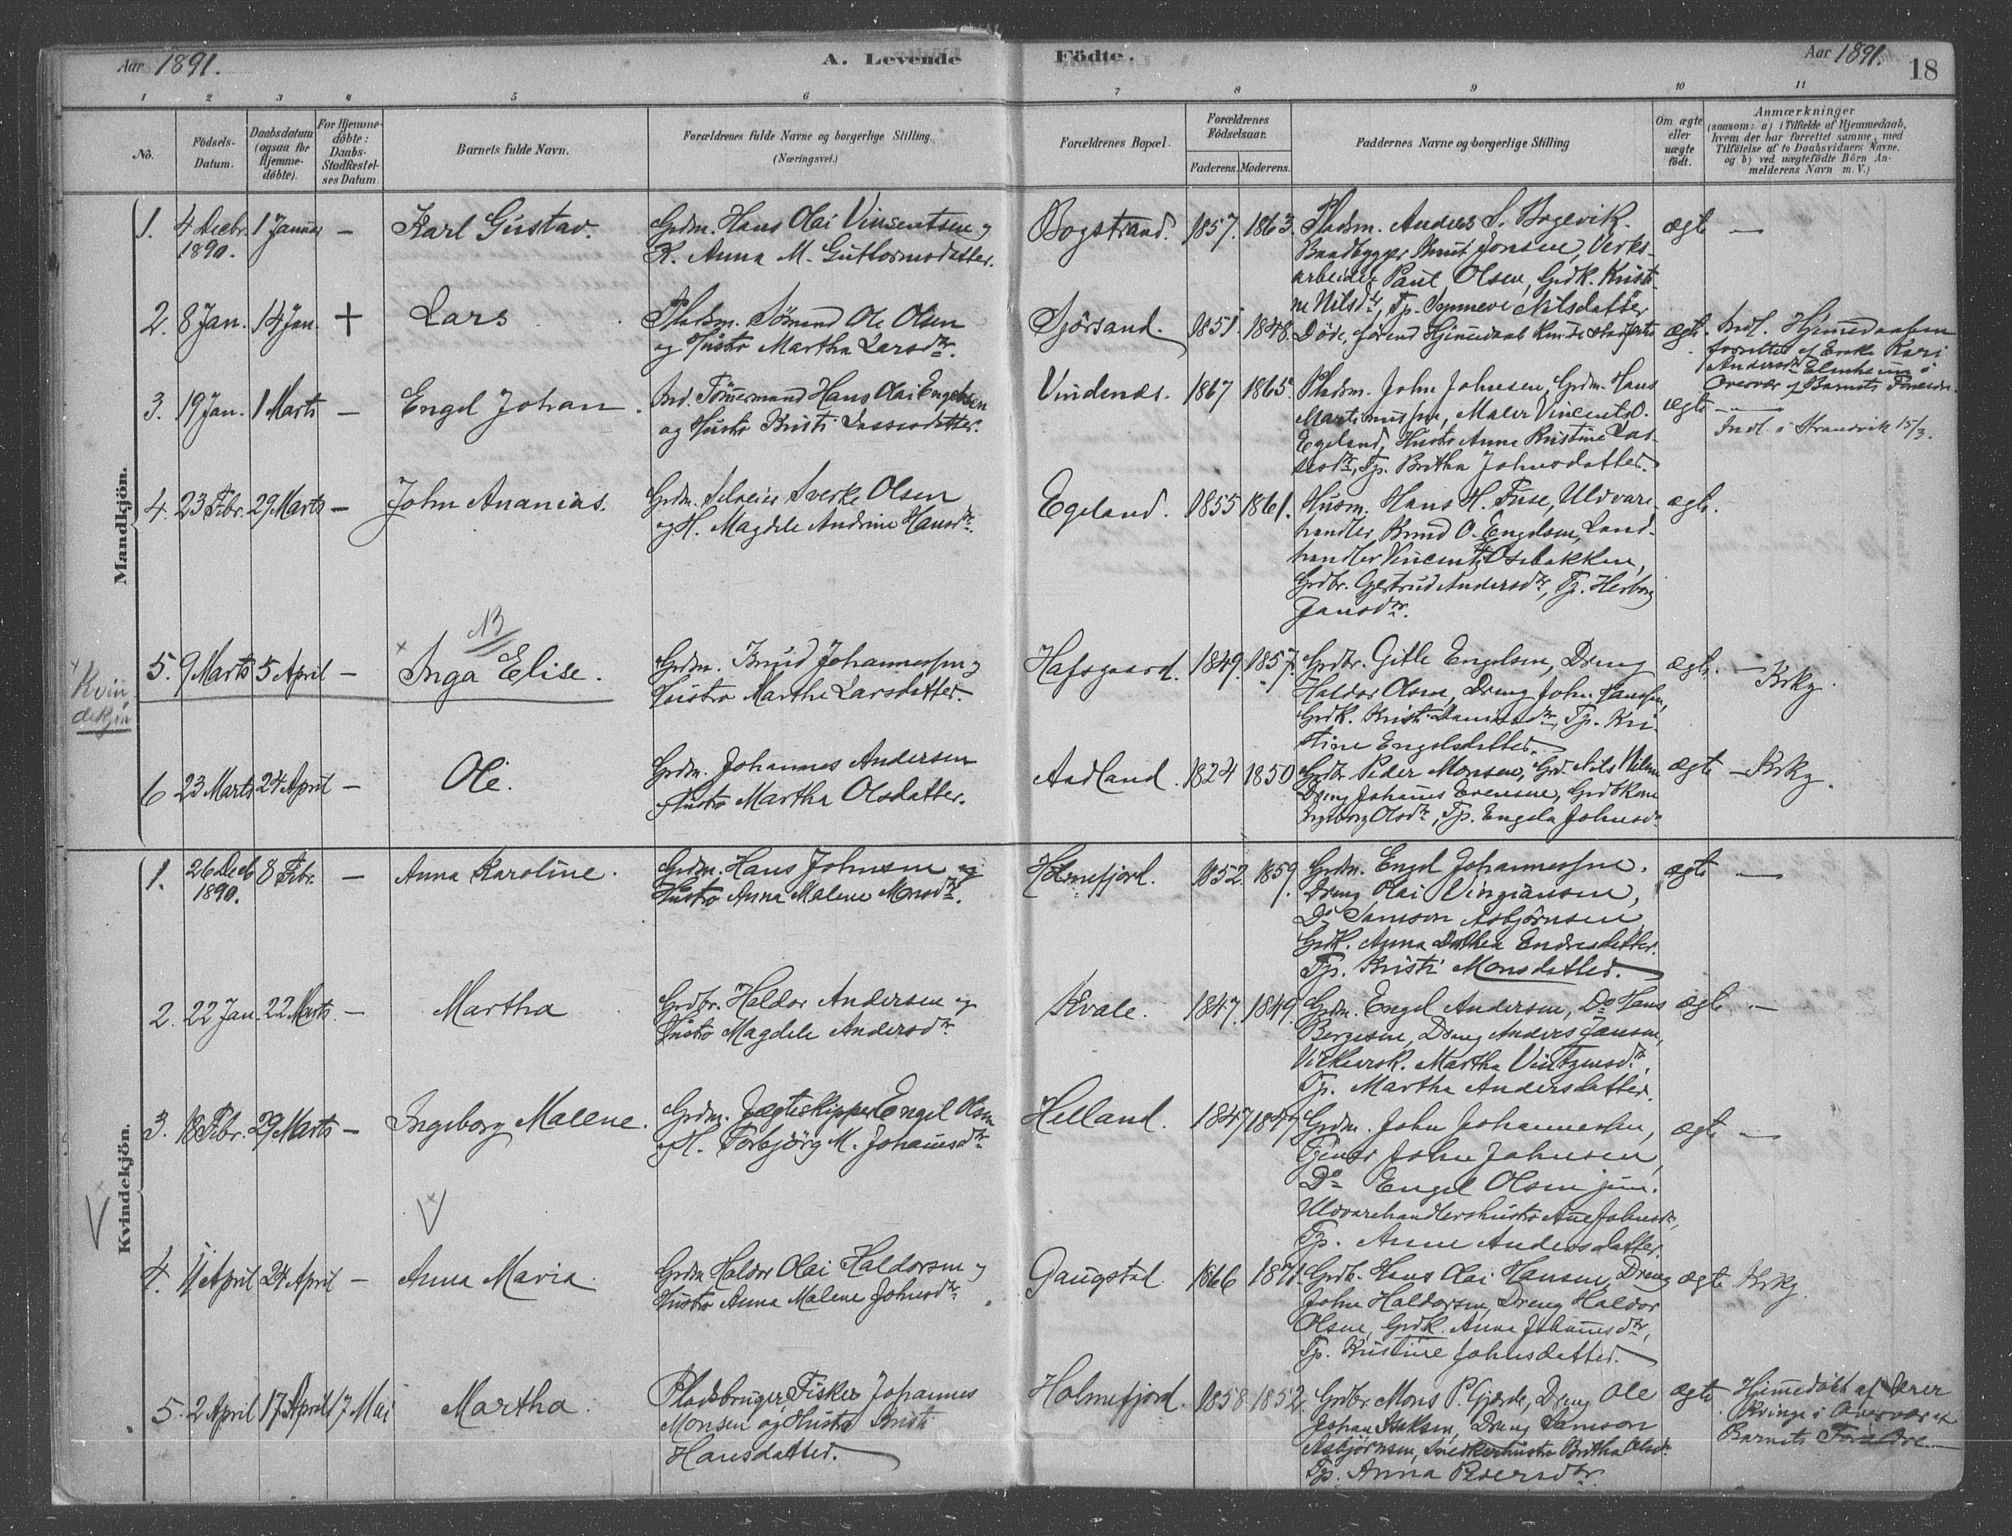 Aar 1891.
A. Levende
Födte.
Aar 1891.
18
1 2 3 4 5 6 7 8 9 10 11
No.
Födsels-
Datum.
Daabsdatum
(ogsaa for
Hjemme-
döbte).
For Hjemme-
döbte:
Daabs-
Stadfæstel-
ses Datum.
Barnets fulde Navn.
Forældrenes fulde Navne og borgerlige Stilling.
(Næringsvei.)
Forældrenes Bopæl.
Forældrenes
Födselsaar.
Faderens. Moderens.
Faddernes Navne og borgerlige Stilling
Om ægte
eller
uægte
födt.
Anmærkninger
(saasom: a) i Tilfælde af Hjemmedaab,
hvem der har forrettet samme, med
Tilföielse af to Daabsvidners Navne.
og b) ved uægtefödte Börn An-
melderens Navn m. V.)
Mandkjön.
1. 4 Decbr.
1890.
1 Januar
—
Karl Gustav.
Grdm. Hans Olai Vinsentsen og
K. Anna M. Guttormsdatter.
Bogstrand.
1857. 1863.
Pladsm. Anders S. Bogevik.
Baadbygger Knut Jonsen, Verks-
arbeider Paul Olsen, Grdk. Kristi-
ne Nilsdtr, Tp. Synneve Nilsdatter
ægte
—
2. 8 Jan. 14 Jan. +
Lars
Pladsm. Sömand Ole Olsen
og Hustr. Martha Larsdtr.
Sjörsand.
1851 1848.
Döde, förend Hjemmedaab kunde stadfæstes
ægte.
Indl. Hjemmedaaben
forrettet af Enke Kari
Andersdtr Elnheim i
Overvær af Barnets Forældre.
3. 19 Jan. 1 Marts —
Engel Johan.
Ind. Tömmermand Hans Olai Engelsen
og Hustr. Kristi Lassesdatter.
Vindenæs.
1867 1865.
Pladsm. John Johnsen, Grdm. Hans
Martinussen, Maler Vincents O.
Egeland, Hustr. Anna Kristine Las-
sesdtr, Tp. Britha Johnsdatter.
ægte
—
Indl. i Strandvik 15/3.
4. 23 Febr. 29 Marts —
John Ananias.
Grdm. Sverke Olsen
og H. Magdele Andrine Hansdtr.
Egeland.
1855 1861.
Husm. Hans H. Fuse, Uldvare-
handler Knud O. Engelsen, Land-
handler Vincents Osebakken,
Grdbr. Gertrud Andersdtr, Tp. Herborg
Jansdtr.
ægte.
NB
Kvin
dekjøn
5. 9 Marts 5 April —
Inga Elise.
Grdm. Knud Johannessen og
Hustro Martha Larsdatter.
Hafsgaard.
1849. 1857.
Grdbr. Gitle Engelsen, Dreng
Haldor Olsen, Dreng John Hansen,
Grdk. Kristi Danielsdtr, Tp. Kri-
stine Engelsdatter.
ægte. —
Krkg.
6 23 Marts 24 April —
Ole.
Grdm. Johannes Andersen
Hustro Martha Olsdatter.
Aadland.
1824 1850
Grdbr. Peder Monsen, Grd. Nils Nilsen
Dreng Johannes Evensen, Grdbkone
Ingeborg Olsdtr, Tp. Engela Johnsdtr
ægte
—Krkg.
Kvindekjön.
1. 26 Decb
1890.
8 Febr. —
Anna Karoline.
Grdm. Hans Johnsen og
Hustro Anna Malene Monsdtr.
Holmefjord.
1852 1859.
Grdm. Engel Johannessen.
Dreng Olai Vingiansen,
Do Samson Asbjörnsen,
Grdk. Anna Dorthea Endresdatter.
Tp. Kristi Monsdatter.
ægte
—
2. 22 Jan. 22 Marts. —
Martha
Grdbr. Haldor Andersen og
Hustro Magdele Andersdtr.
Kvale.
1847. 1849.
Grdm. Engel Andersen, Do Hans
Bergesen, Dreng Anders Jansen,
Martha Vintzensdtr,
Tp. Martha Andersdatter.
ægte
—
3. 18 Febr. 29 Marts —
Ingeborg Malene.
Grdm. Jægteskipper Engel Olsen
og H. Torbjörg M. Johannesdtr.
Helland.
1847 1847
Grdm. John Johannessen,
Tjener John Johnsen,
Do Engel Olsen jun.
Uldvarehandlershustro Ane Johnsdtr,
Tp. Anne Andersdatter.
ægte
—
4. 11 April 24 April —
Anna Maria.
Grdm Haldor Olai Haldorsen og
Hustro Anna Malene Johnsdtr.
Gaugstad.
1866 1871.
Grdb. Hans Olai Hansen, Dreng
John Haldorsen, Dreng Haldor
Olsen, Grdk. Anna Johannesdtr,
Tp. Kristine Johnsdatter.
ægte
Krkg.
5. 2 April 17 April 17 Mai
Martha.
Pladsbruger Fisker Johannes
Monsen og Hustro Kristi
Hansdatter.
Holmefjord.
1858 1852.
Grdbr. Mons P. Gjerde, Dreng Ole
Johan Isaksen, Dreng Samson
Asbjörnsen, Snedkerhustro Britha Olsdtr.
Tp. Anna Pedersdtr.
ægte
Hjemmedöbt af Lærer
Kvinge i Overvær af
Barnets Forældre.